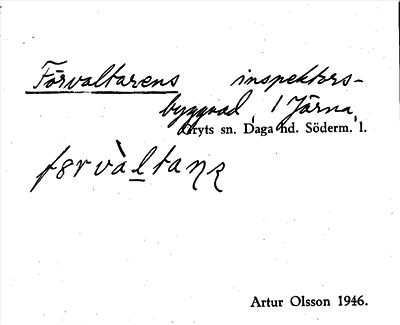 Förvaltarens inspektors-
byggnad, i Järna,
Gryts sn. Daga hd. Söderm. l.
førvàltaɳʂ
Artur Olsson 1946.